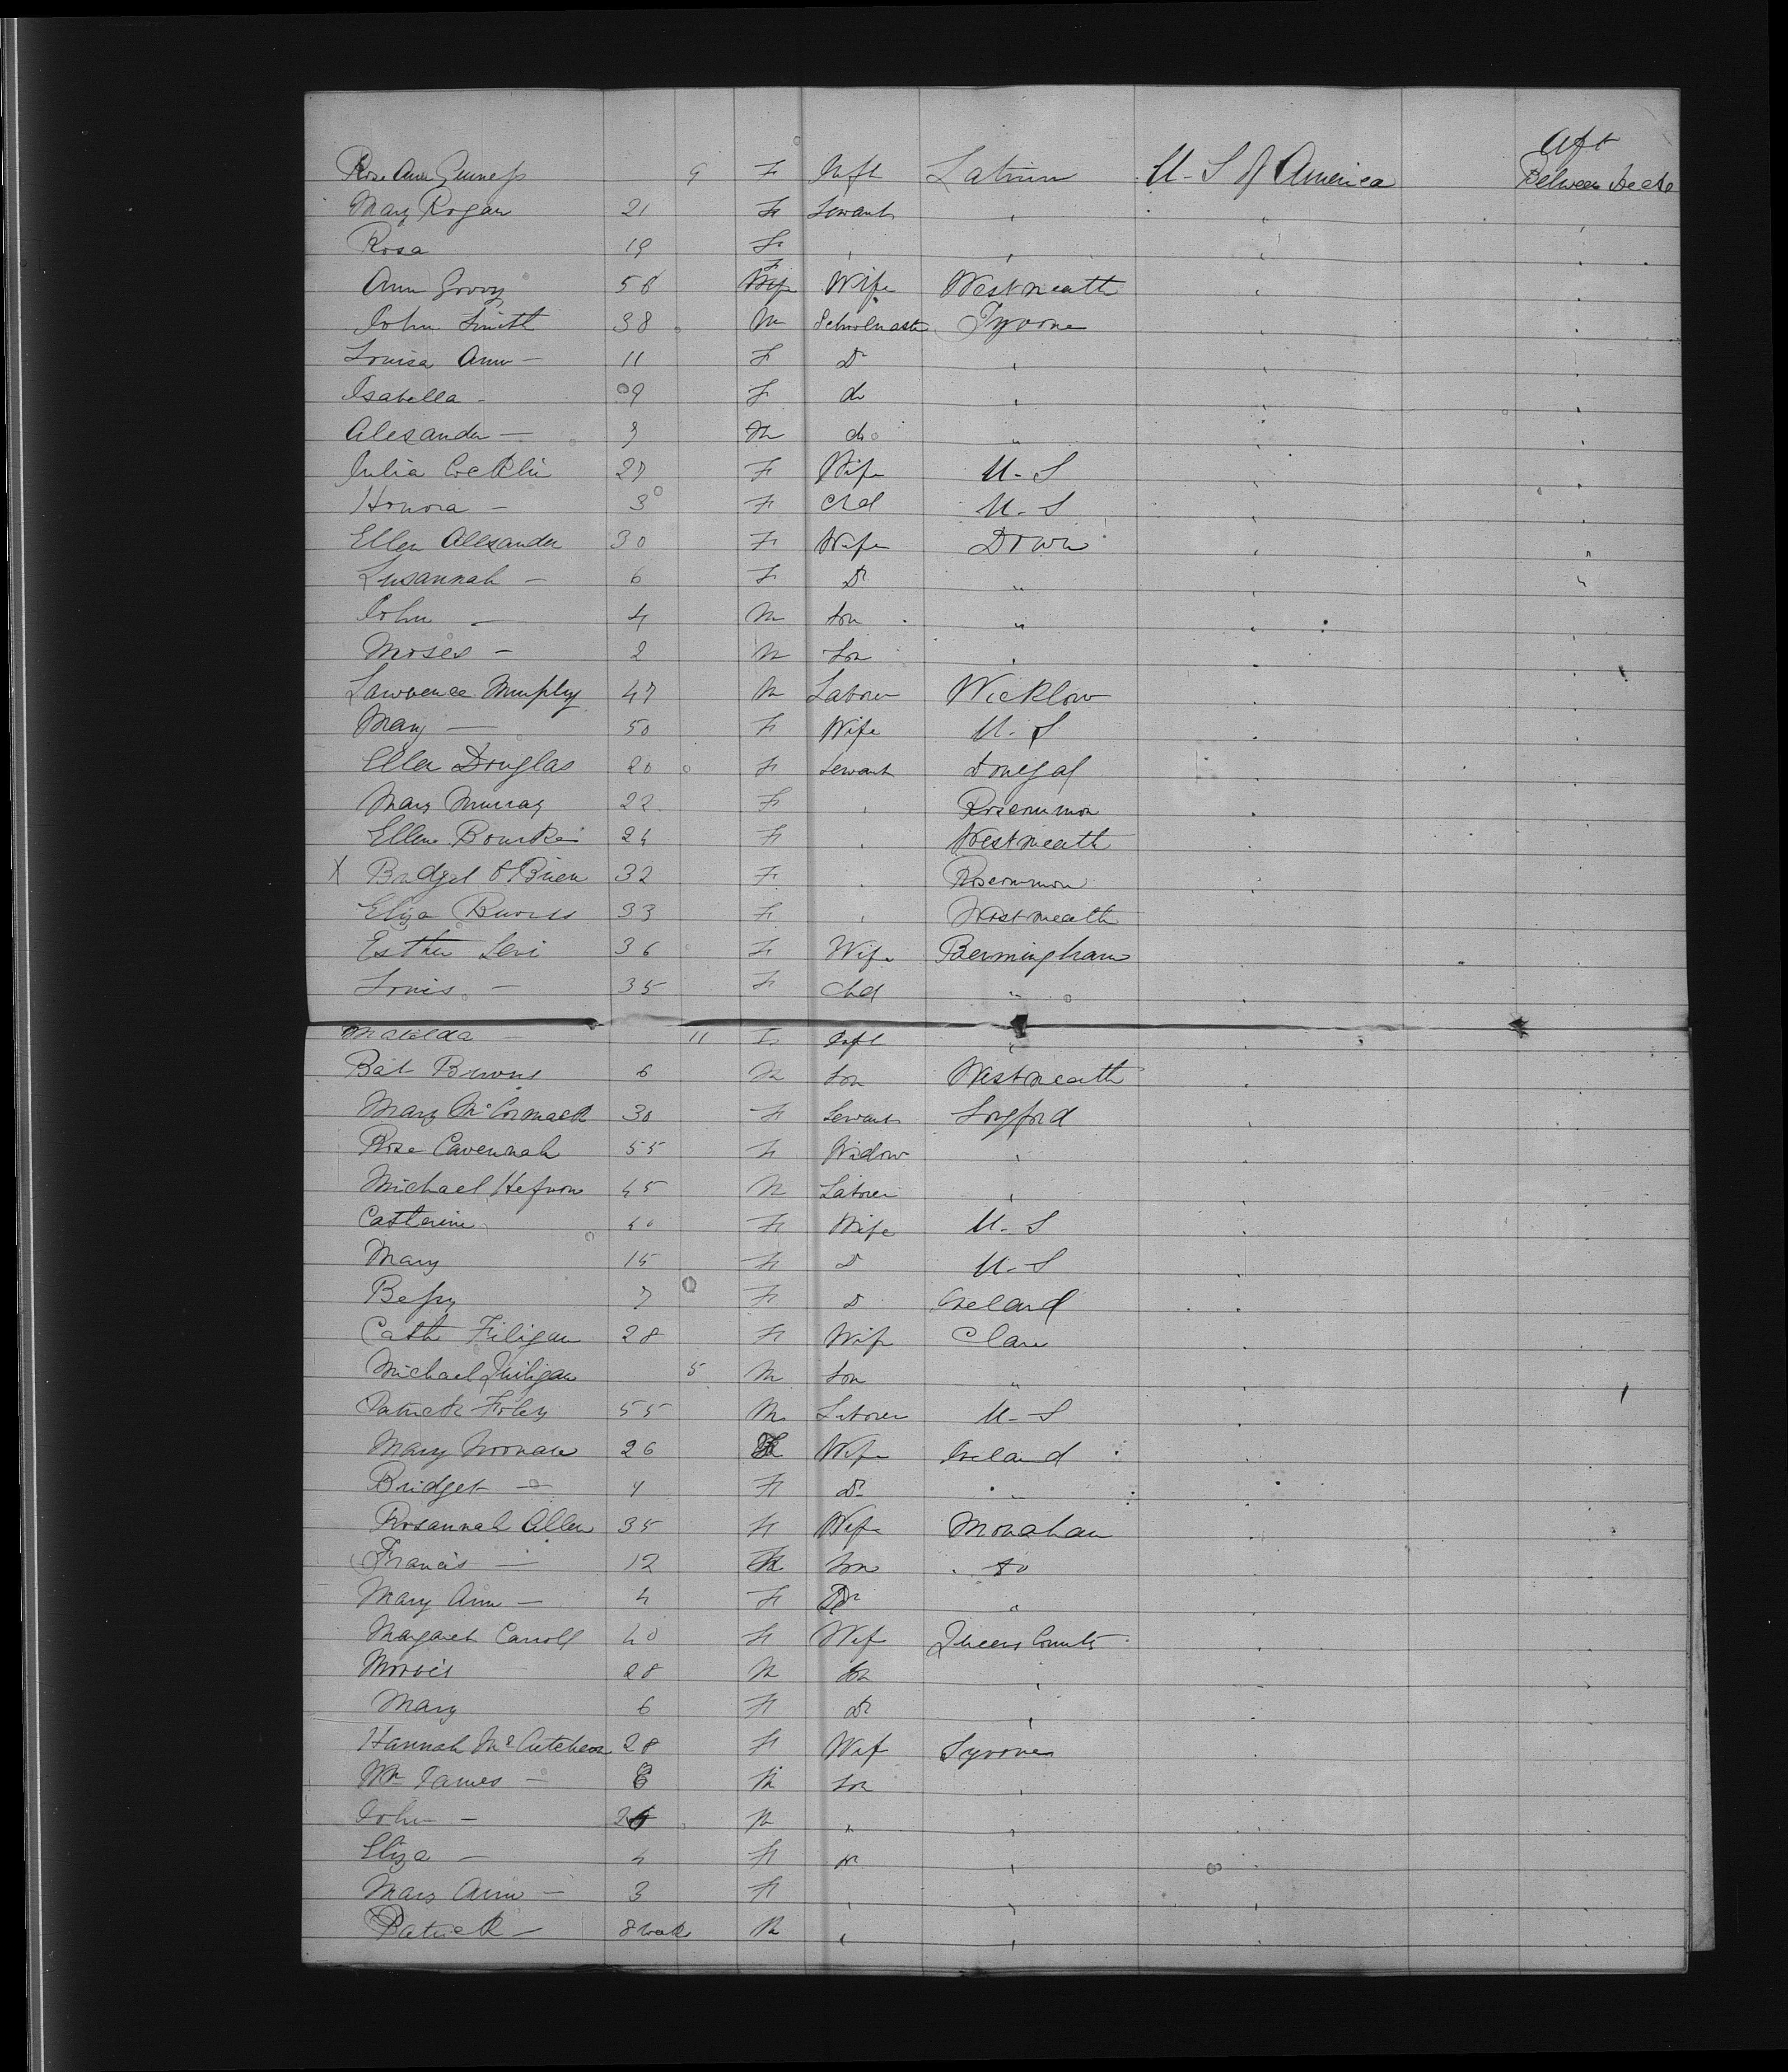 Aft
Rose Ann Guiness 9 F Inft Latrim U-S of America Between decks
Mary Rogan 21 F Servant "
Rosa 19 F " "
Ann 58 F Wife Westmeath
John Smith 38 M Schoolmaster Tyrone
Louisa Ann — 11 F Dr "
Isabella - 09 F do "
Alexander — 9 M do "
Julia Cocklin 27 F Wife U-S
Honora - 3 F Chd U-S
Ellen Alexander 30 F Wife Down
Susannah - 6 F Dr "
John - 4 M Son "
Moses - 2 M Son "
Lawrence Murphy 47 M Laborer Wicklow
Mary — 50 F Wife U-S
Ellen Douglas 20 F Servant Donegal
Mary Murray 22 F " Roscommon
Ellen Bourke 24 F " Westmeath
X Bridget O'Brien 32 F " Roscommon
Eliza 33 F " Westmeath
Esther Levi 36 F Wife Bermingham
Louis - 35 F Chd "
Matilda - 11 F Inft "
Bat 6 M Son Westmeath
Mary McCormack 30 F Servant Longford
Rose Cavennah 55 F Widow "
Michael Hefron 45 M Laborer "
Catherine 40 F Wife U-S
Mary 15 F D U-S
Bessy 7 F D Ireland
Cath Filigan 28 F Wife Clare
Michael 5 M Son "
Patrick Foley 55 M Laborer U-S
Mary Noonan 26 F Wife Ireland
Bridget — 4 F Dr "
Rosannah Allen 35 F Wife Monahan
Francis — 12 M Son do
Mary Ann — 4 F Dr "
Margaret Carroll 40 F Wif Queens County
Morris 28 M Son "
Mary 6 F Dr "
Hannah McCutcheon 28 F Wif Tyrone
Wm James - 8 M Son "
John - M " "
Eliza — 4 F Dr "
Mary Ann — 3 F " "
Patrick — 8 week M " "